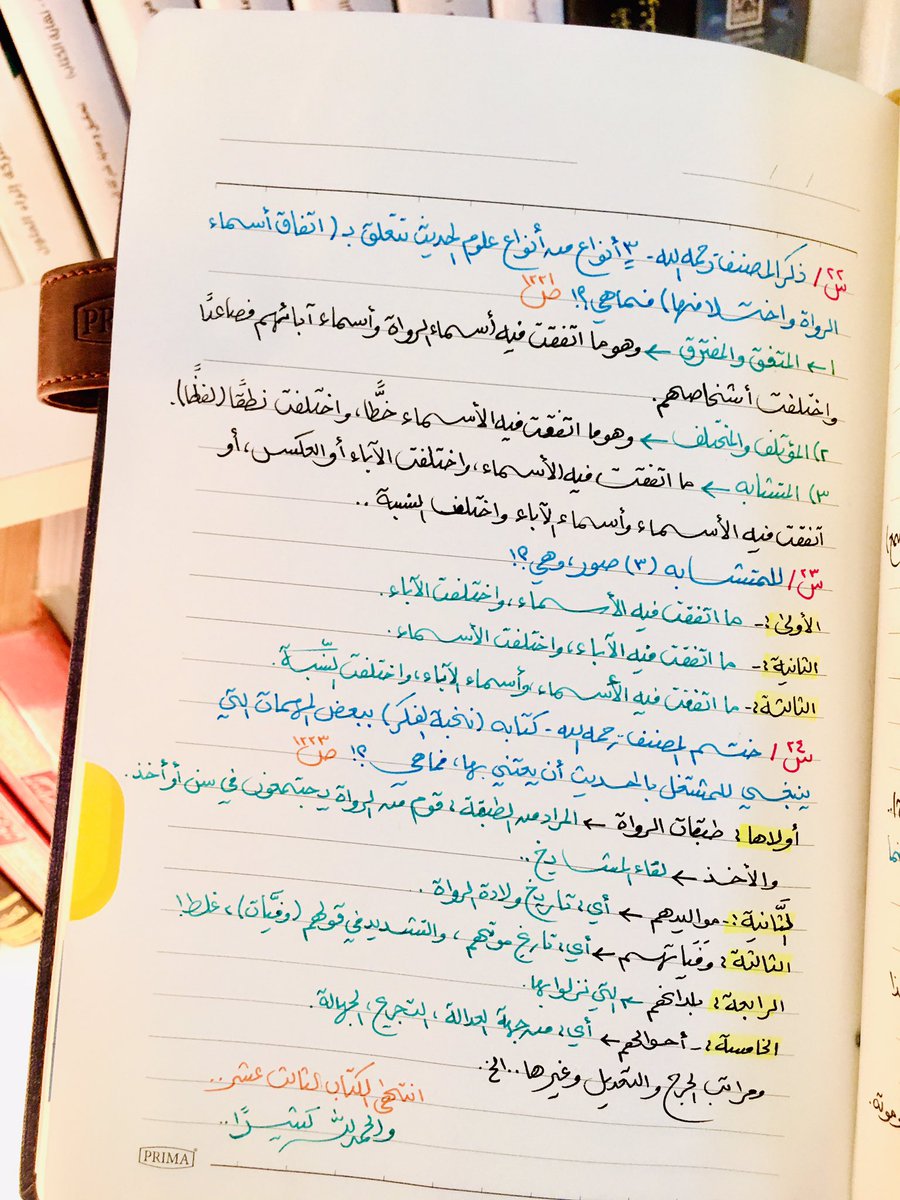 س٢٢/ ذكر المصنف - رحمه الله - ٣ أنواع من أنواع علوم الحديث تتعلق بـ (اتفاق أسماء
الرواة واختلافها) فما هي؟! ص١٢٢١
١← المتفق والمفترق ← وهو ما اتفقت فيه أسماء الرواة وأسماء آبائهم فصاعدًا
واختلفت أشخاصهم.
٢) المؤتلف والمختلف ← وهو ما اتفقت فيه الأسماء خطًّا، واختلفت نطقًا (لفظًا).
٣) المتشابه ← ما اتفقت فيه الأسماء، واختلفت الآباء أو العكس، أو
اتفقت فيه الأسماء وأسماء الآباء واختلف النسبة..
س٢٣/ للمتشابه (٣) صور، وهي؟!
الأولى:- ما اتفقت فيه الأسماء، واختلفت الآباء.
الثانية:- ما اتفقت فيه الآباء، واختلفت الأسماء.
الثالثة:- ما اتفقت فيه الأسماء، وأسماء الآباء، واختلفت النِّسبة.
س٢٤/ ختم المصنف - رحمه الله - كتابه (نخبة الفكر) ببعض المهمات التي
ينبغي للمشتغل بالحديث أن يعتني بها، فما هي؟! ص١٢٢٣
أولاها: طبقات الرواة ← المراد من الطبقة: قوم من الرواة يجتمعون في سن أو أخذ.
والأخذ ← لقاء المشايخ..
الثَّانية:- مواليدهم ← أي: تاريخ ولادة الرواة.
الثالثة: وَفَيَاتهم ← أي: تاريخ موتهم، والتشديد في قولهم (وفيَّات)، غلط!
الرابعة: بلدانهم ← التي نزلوا بها.
الخامسة:- أحوالهم ← أي: من جهة العدالة، التجريح، الجهالة.
ومراتب الجرح والتعديل وغيرها.. الخ.
انتهى الكتاب الثالث عشر..
والحمد لله كثيرًا..
PRIMA